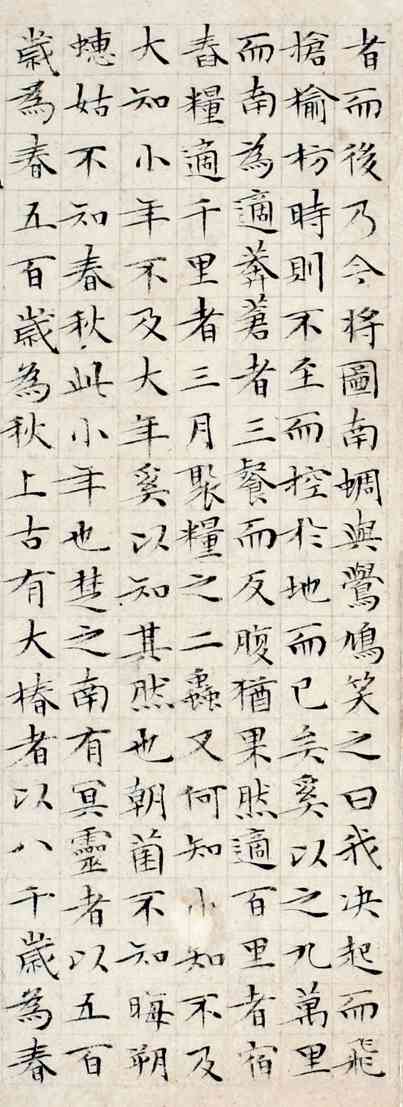 者而後乃今将圖南蜩與鷽鳩笑之曰我决起而飛
搶榆枋時則不至而控扵地而已矣奚以之九萬里
而南為適莽蒼者三餐而反腹猶果然適百里者宿
舂糧適千里者三月聚糧之二蟲又何知小知不及
大知小年不及大年奚以知其然也朝菌不知晦朔
蟪蛄不知春秋此小年也楚之南有冥靈者以五百
歲為春五百歲為秋上古有大椿者以八千歲為春